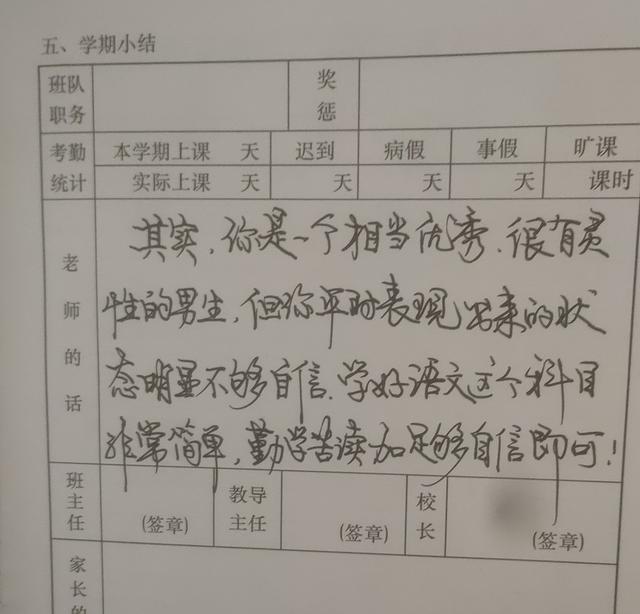 五、学期小结
班队职务 奖惩
考勤统计 本学期上课 天 迟到 病假 事假 旷课
实际上课 天 天 天 天 课时
老师的话
其实,你是一个相当优秀、很有灵
性的男生,但你平时表现出来的状
态明显不够自信、学好语文这个科目
非常简单,勤学苦读加足够自信即可!
班主任 (签章) 教导主任 (签章) 校长 (签章)
家长的